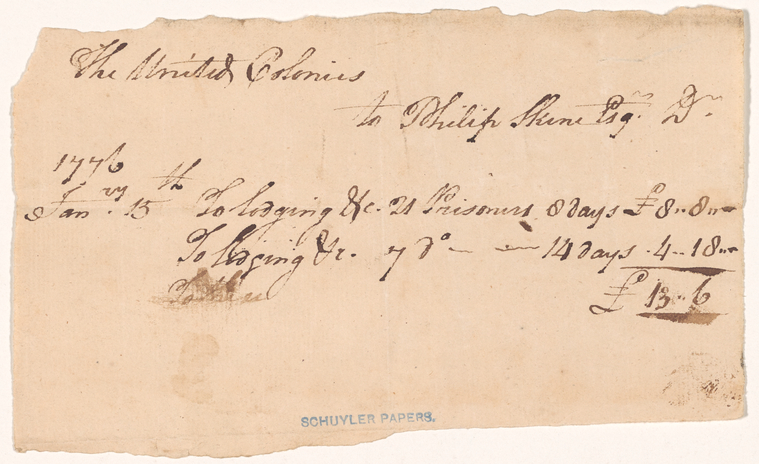 The United Colonies
to Philip Skene Esqr. Dr.
1776
Janry. 15th To lodging &c. 21 Prisoners 8 days £ 8 „ 8 „ –
To lodging &c. 7 do — — 14 days . 4 „ 18 „ –
£ 13 „ 6
SCHUYLER PAPERS.